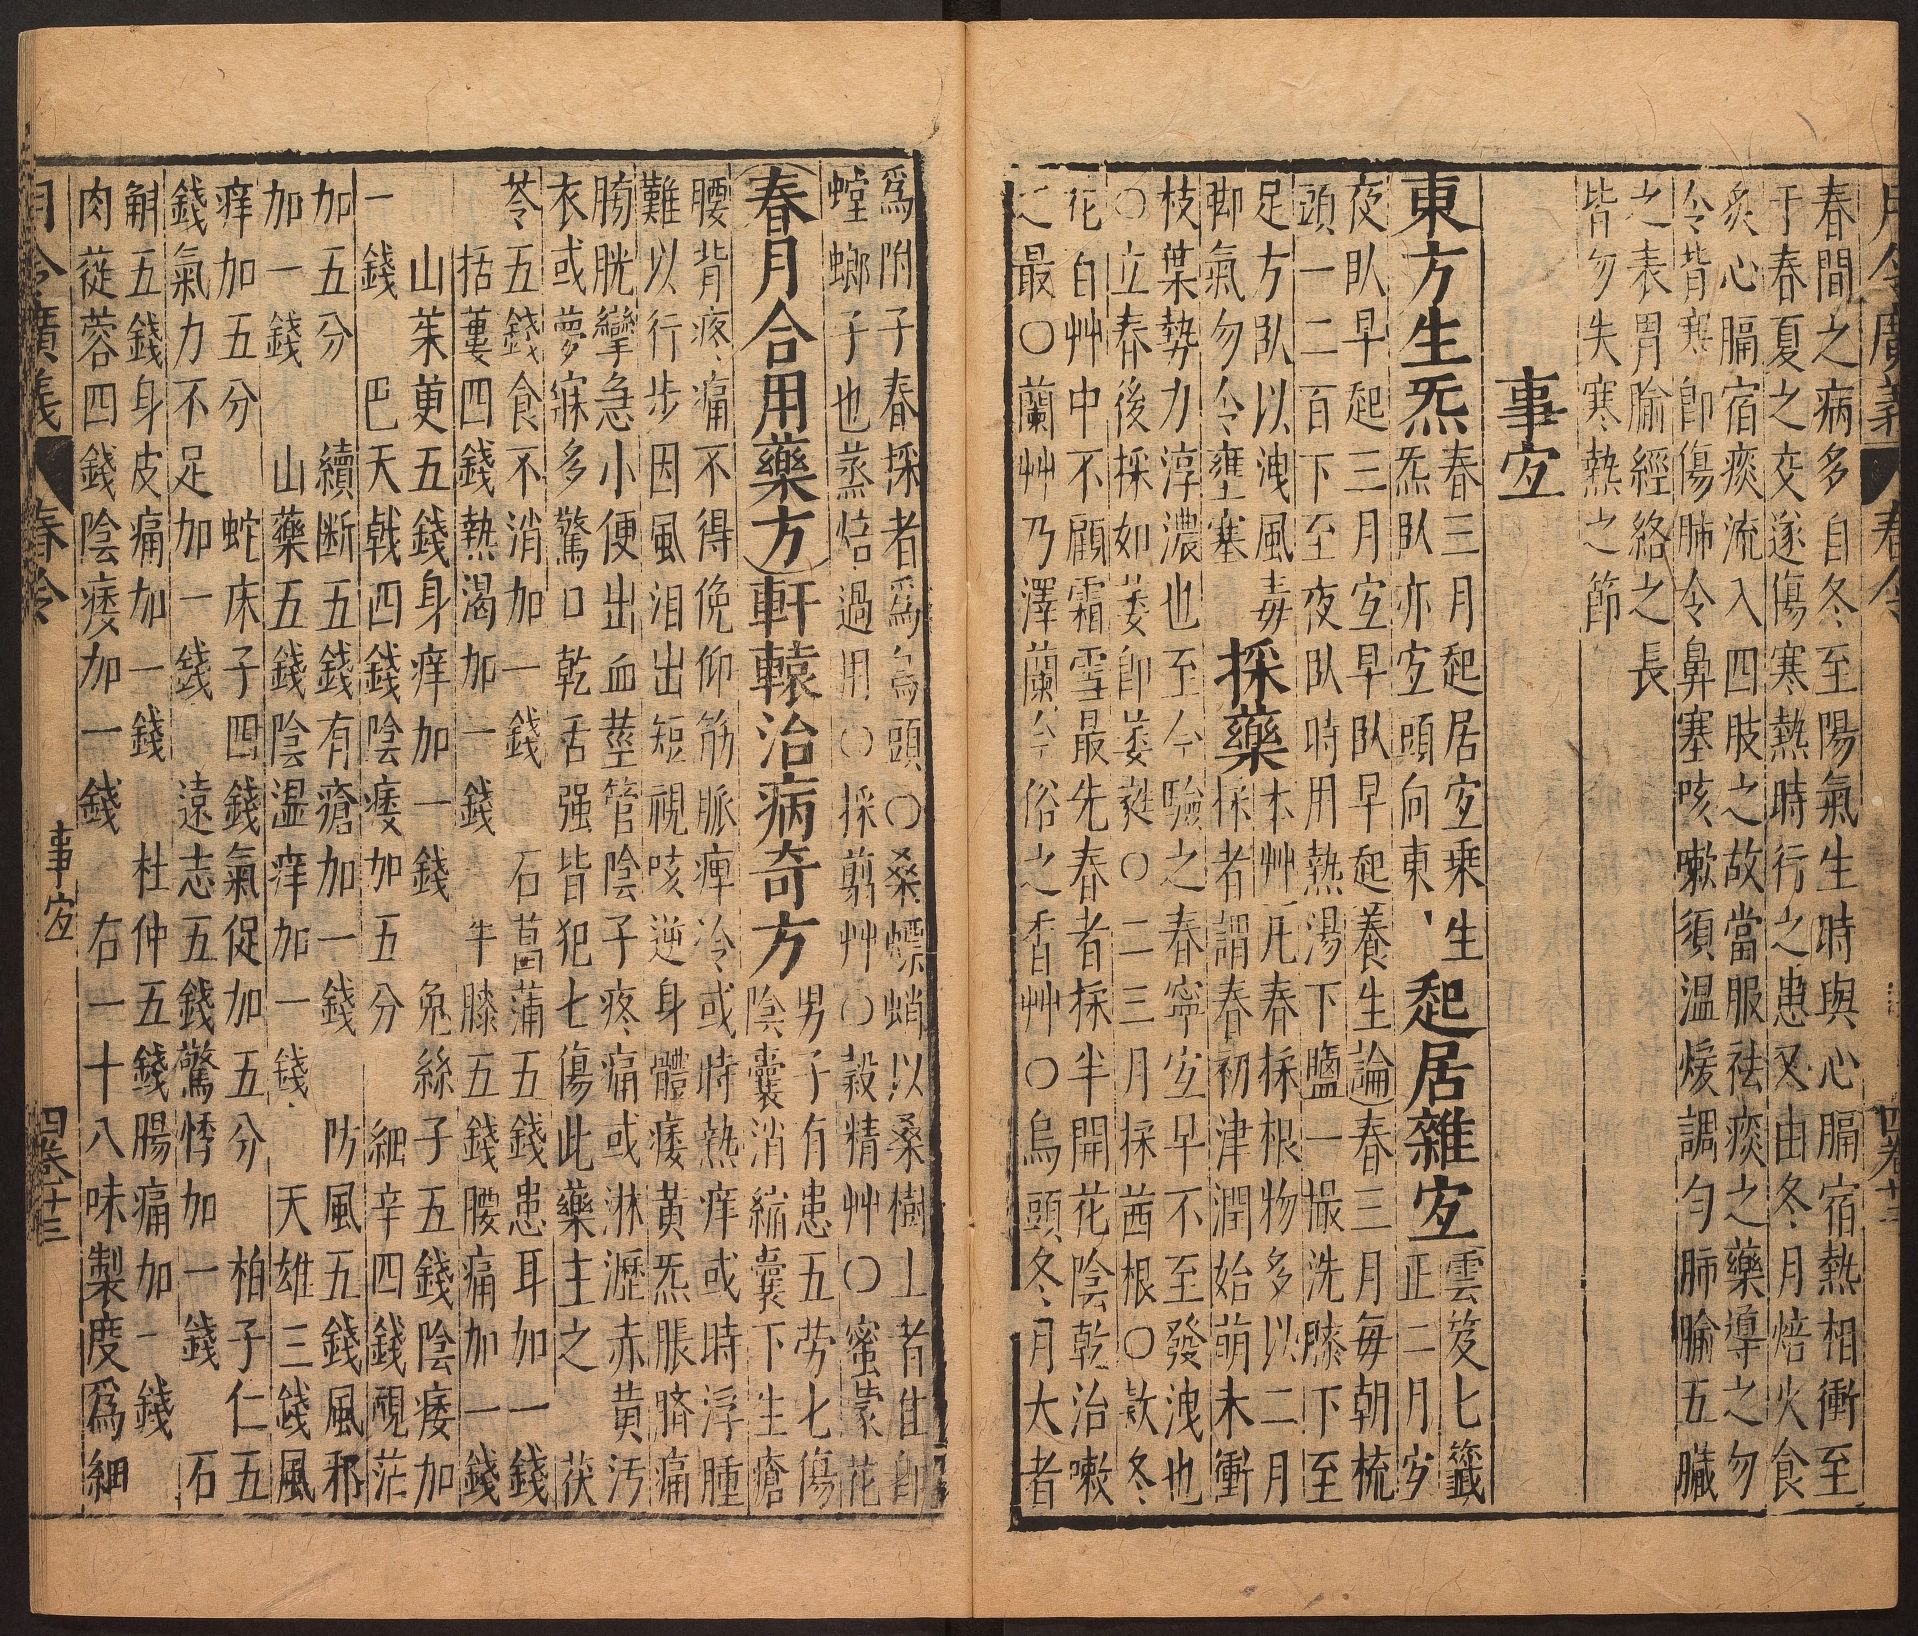 月令廣義 春令 四卷十三
春間之病多自冬至陽氣生時與心膈宿熱相衝至
于春夏之交遂傷寒熱時行之患又由冬月焙火食
炙心膈宿痰流入四肢之故當服祛痰之藥導之勿
令背寒卽傷肺令鼻塞咳嗽須温煖調勻肺腧五臟
之表胃腧經絡之長
皆勿失寒熱之節
事宜
東方生炁
春三月起居宜乘生
炁臥亦宜頭向東
起居雜宜
雲笈七籤
正二月宜
夜臥早起三月宜早臥早起養生論春三月每朝梳
頭一二百下至夜臥時用熱湯下鹽一撮洗膝下至
足方臥以洩風毒
脚氣勿令壅塞
採藥
本艸凡春採根物多以二月
採者謂春初津潤始萌未衝
枝葉勢力淳濃也至今驗之春寧宜早不至發洩也
○立春後採如萎卽萎蕤○二三月採茜根○欵冬
花白艸中不顧霜雪最先春者採半開花陰乾治嗽
之最○蘭艸乃澤蘭今俗之香艸○烏頭冬月大者
爲附子春採者爲烏頭○桑螵蛸以桑樹上者佳卽
螳螂子也蒸焙過用○採剪艸○穀精艸○蜜蒙花
春月合用藥方
軒轅治病奇方
男子有患五劳七傷
陰囊消縮囊下生瘡
腰背疼痛不得俛仰筋脈痺冷或時熱痒或時浮腫
難以行步因風泪出短視咳逆身體痿黃炁脹臍痛
膀胱攣急小便出血莖管陰子疼痛或淋瀝赤黃汚
衣或夢寐多驚口乾舌强皆犯七傷此藥主之 茯
苓五錢食不消加一錢 石菖蒲五錢患耳加一錢
括蔞四錢熱渴加一錢 牛膝五錢腰痛加一錢
山茱萸五錢身痒加一錢 兔絲子五錢陰痿加
一錢 巴天戟四錢陰痿加五分 細辛四錢視茫
加五分 續断五錢有瘡加一錢 防風五錢風邪
加一錢 山藥五錢陰溫痒加一錢 天雄三錢風
痒加五分 蛇床子四錢氣促加五分 柏子仁五
錢氣力不足加一錢 遠志五錢驚悸加一錢 石
斛五錢身皮痛加一錢 杜仲五錢腸痛加一錢
肉蓯蓉四錢陰痿加一錢 右一十八味製度爲細
月令廣義 春令 事宜 四卷十三